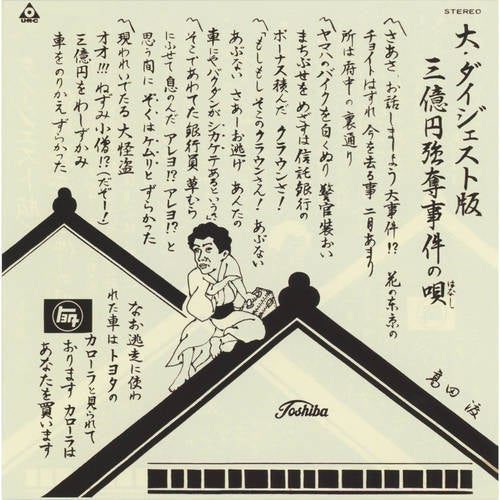 URC
STEREO
大・ダイジェスト版
三億円強奪事件の唄
はなし
さあさ、お話しましょう大事件!? 花の東京の
チョイトはずれ 今を去る事 二月あまり
所は府中の裏通り
ヤマハのバイクを白くぬり 警官装おい
まちぶせをめざすは信託銀行の
ボーナス積んだ クラウンさ!
「もしもし そこのクラウンさん! あぶない
あぶない さあーお逃げ あんたの
車にやバクダンがシカケてあるという」
そこであわてた銀行員 草むら
にふせて 息のんだ アレヨ!? アレヨ!? と
思う間に ぞくはケムリと ずらかった
現われいでたる 大怪盗
オオ!!! ねずみ小僧!? (だぞー!)
三億円を わしずかみ
車をのりかえ ずらかった
なお逃走に使わ
れた車はトヨタの
カローラと見られて
おります カローラは
あなたを買います
トヨタ
高田渡
Toshiba